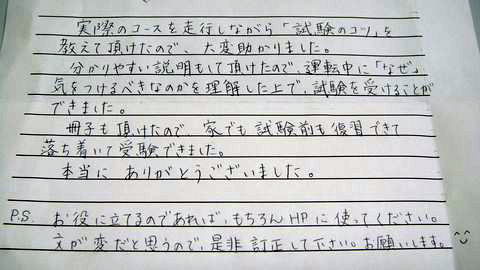 実際のコースを走行しながら「試験のコツ」を
教えて頂けたので、大変助かりました。
分かりやすい説明もして頂けたので、運転中に「なぜ」
気をつけるべきなのかを理解した上で、試験を受けることが
できました。
冊子も頂けたので、家でも試験前も復習できて
落ち着いて受験できました。
本当に ありがとうございました。
P.S. お役に立てるのであれば、もちろんHPに使ってください。
文が変だと思うので、是非訂正して下さい。お願いします。